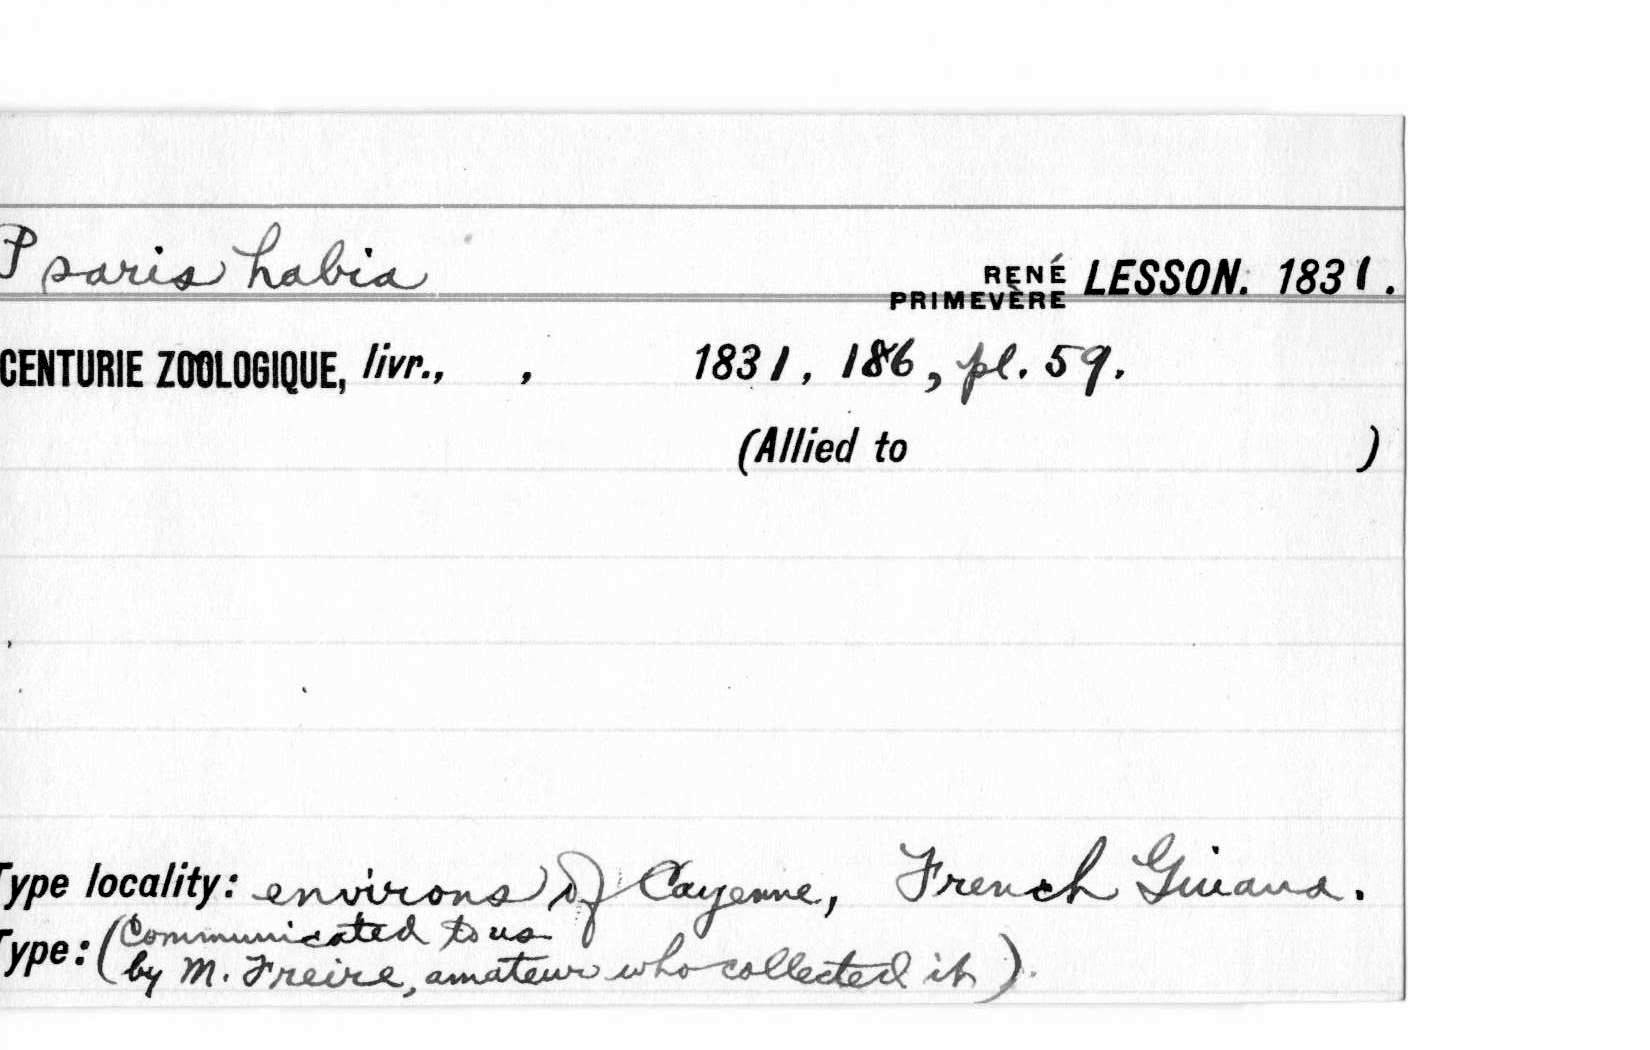 Psaris habia RENÉ PRIMEVÈRE LESSON. 1831.
CENTURIE ZOOLOGIQUE, livr., , 1831, 186, pl. 59.
(Allied to )
Type locality: environs of Cayenne, French Guiana.
Type: (Communicated to us
by M. Freire, amateur who collected it).